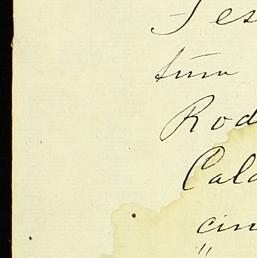 Tes
tiim
Rod
Cala
cin
"